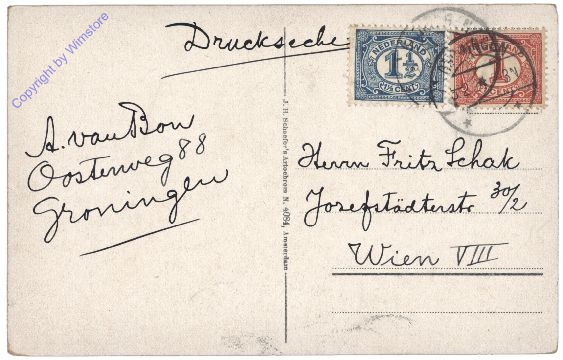 Copyright by Wimstore
Drucksache
NEDERLAND
1½
1½ CENT
1
CENT
GRONINGEN
A. van Bon
Oosterweg 88
Groningen
J. H. Schaefer's Artochroom N. 4084, Amsterdam
Herrn Fritz Schak
Josefstädterstr. 30/2
Wien VIII